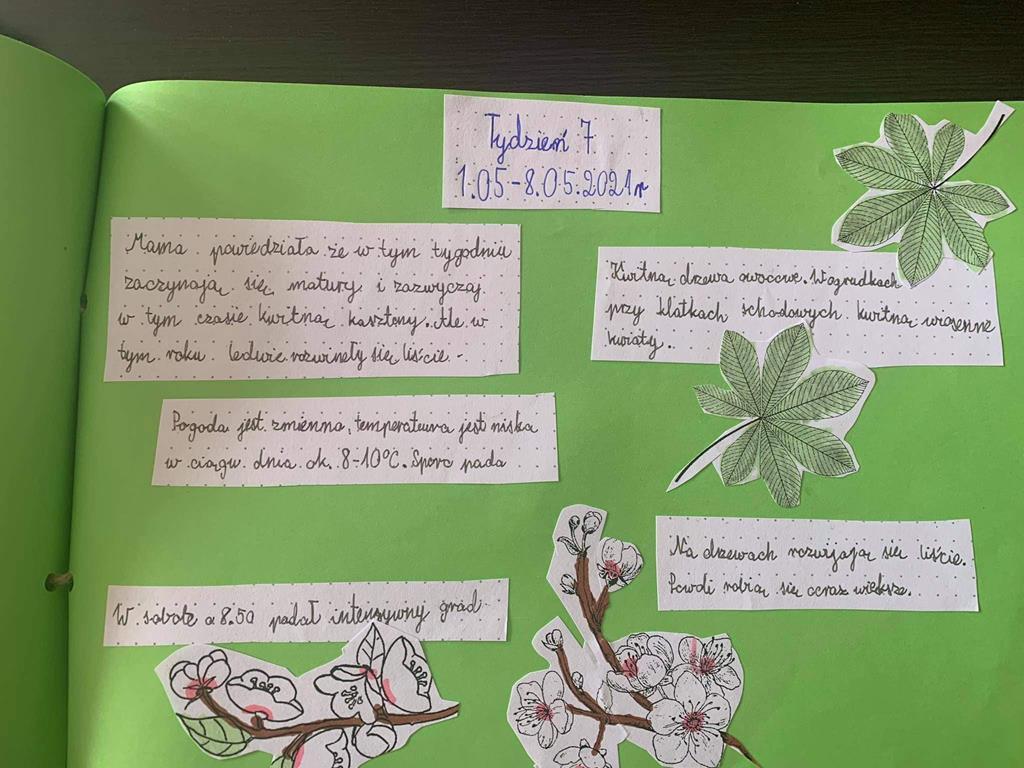 Tydzień 7
1.05-8.05.2021r
Mama powiedziała że w tym tygodniu
zaczynają się matury i zazwyczaj
w tym czasie kwitną kasztony. Ale w
tym roku ledwie rozwinęły się liście.
Kwitną drzewa owocwe. W ogrudkach
przy klatkach schodowych kwitną wiosenne
kwiaty.
Pogoda jest zmienna, temperatura jest niska
w ciągu dnia ok. 8-10°C. Sporo pada
Na drzewach rozwijają się liście.
robią się coraz większe.
W sobotę o 8.50 padał intensywny grad